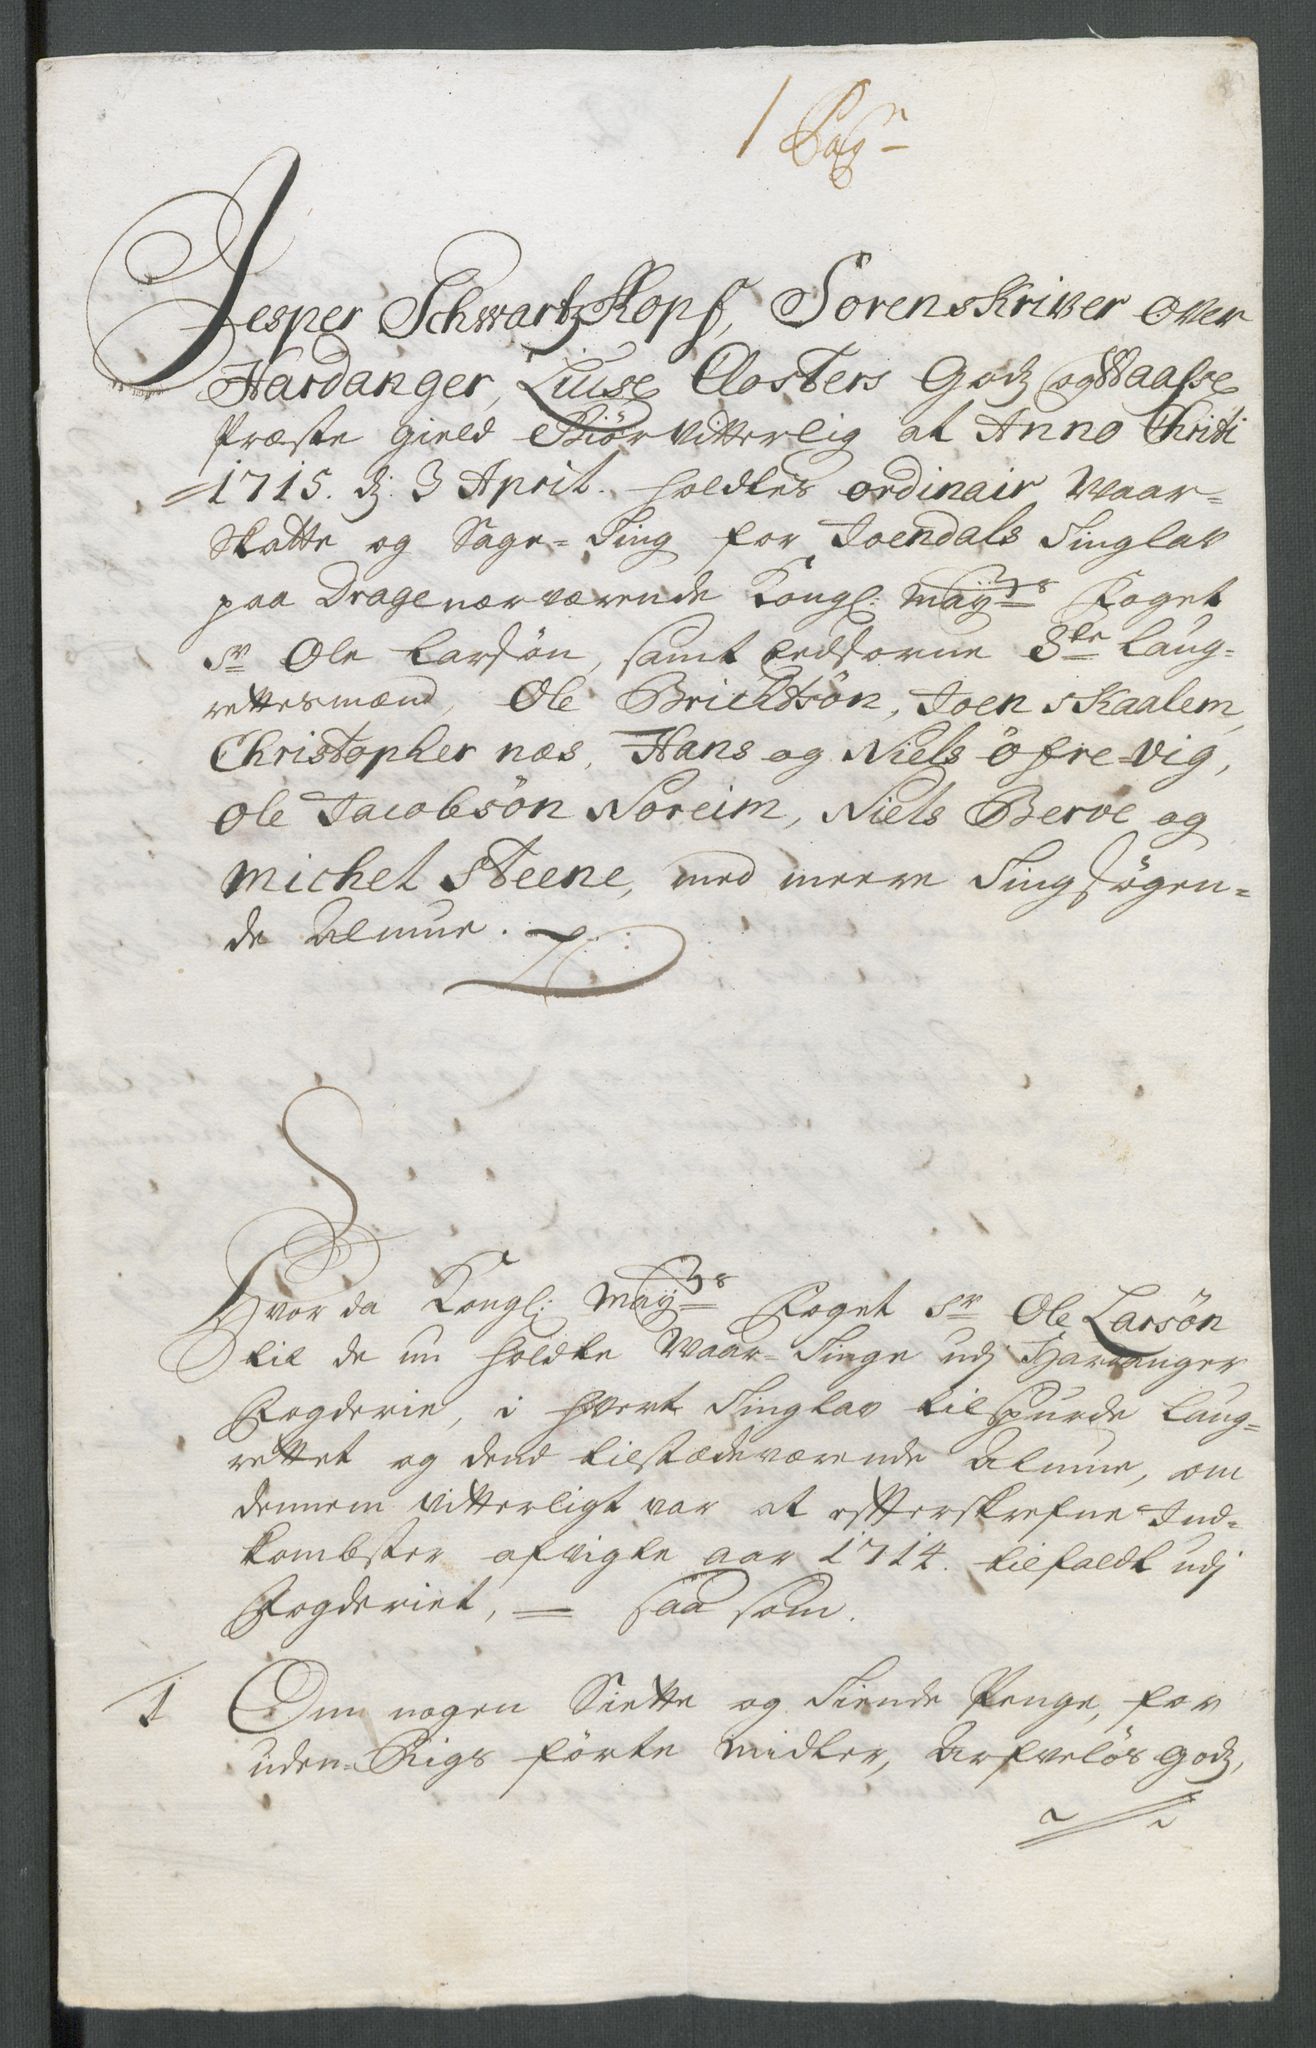 1 Pag:
Jesper Schwartzkopf, Sorenskriver over
Hardanger, Liuse Closters Godz og Waasse
Præste gield Giör vitterlig at Anno Christi
1715. d. 3 April. holdtes ordinair Waar-
Skatte og Sage-Ting for Joendals Tinglav
paa Drage nærværende Kongl: May:ts Foget
Sr Ole Larsön, samt Eedsorne 8te Laug-
rettesmænd, Ole Brichtsön, Joen Skaalem,
Christopher næs, Hans og Niels öfre-vig,
Ole Jacobsön Soreim, Niels Berve og
Michel Steene, med meere Ting Sögen-
de Almue.
Hvor da Kongl: May:ts Foget Sr Ole Larsön
til de nu holdte Waar-Tinge udj Hardanger
Fogderie, i hvert Tinglav tilspurde Laug-
rettet og dend tilstædeværende Almue, om
dennem vitterligt var at efterskrefne Ind-
kombster afvigte aar 1714. tilfaldt udj
Fogderiet, — saa som.
1 Om nogen Siette og Tiende Penge, for
uden-Rigs förte midler, Arfvelös Godz,